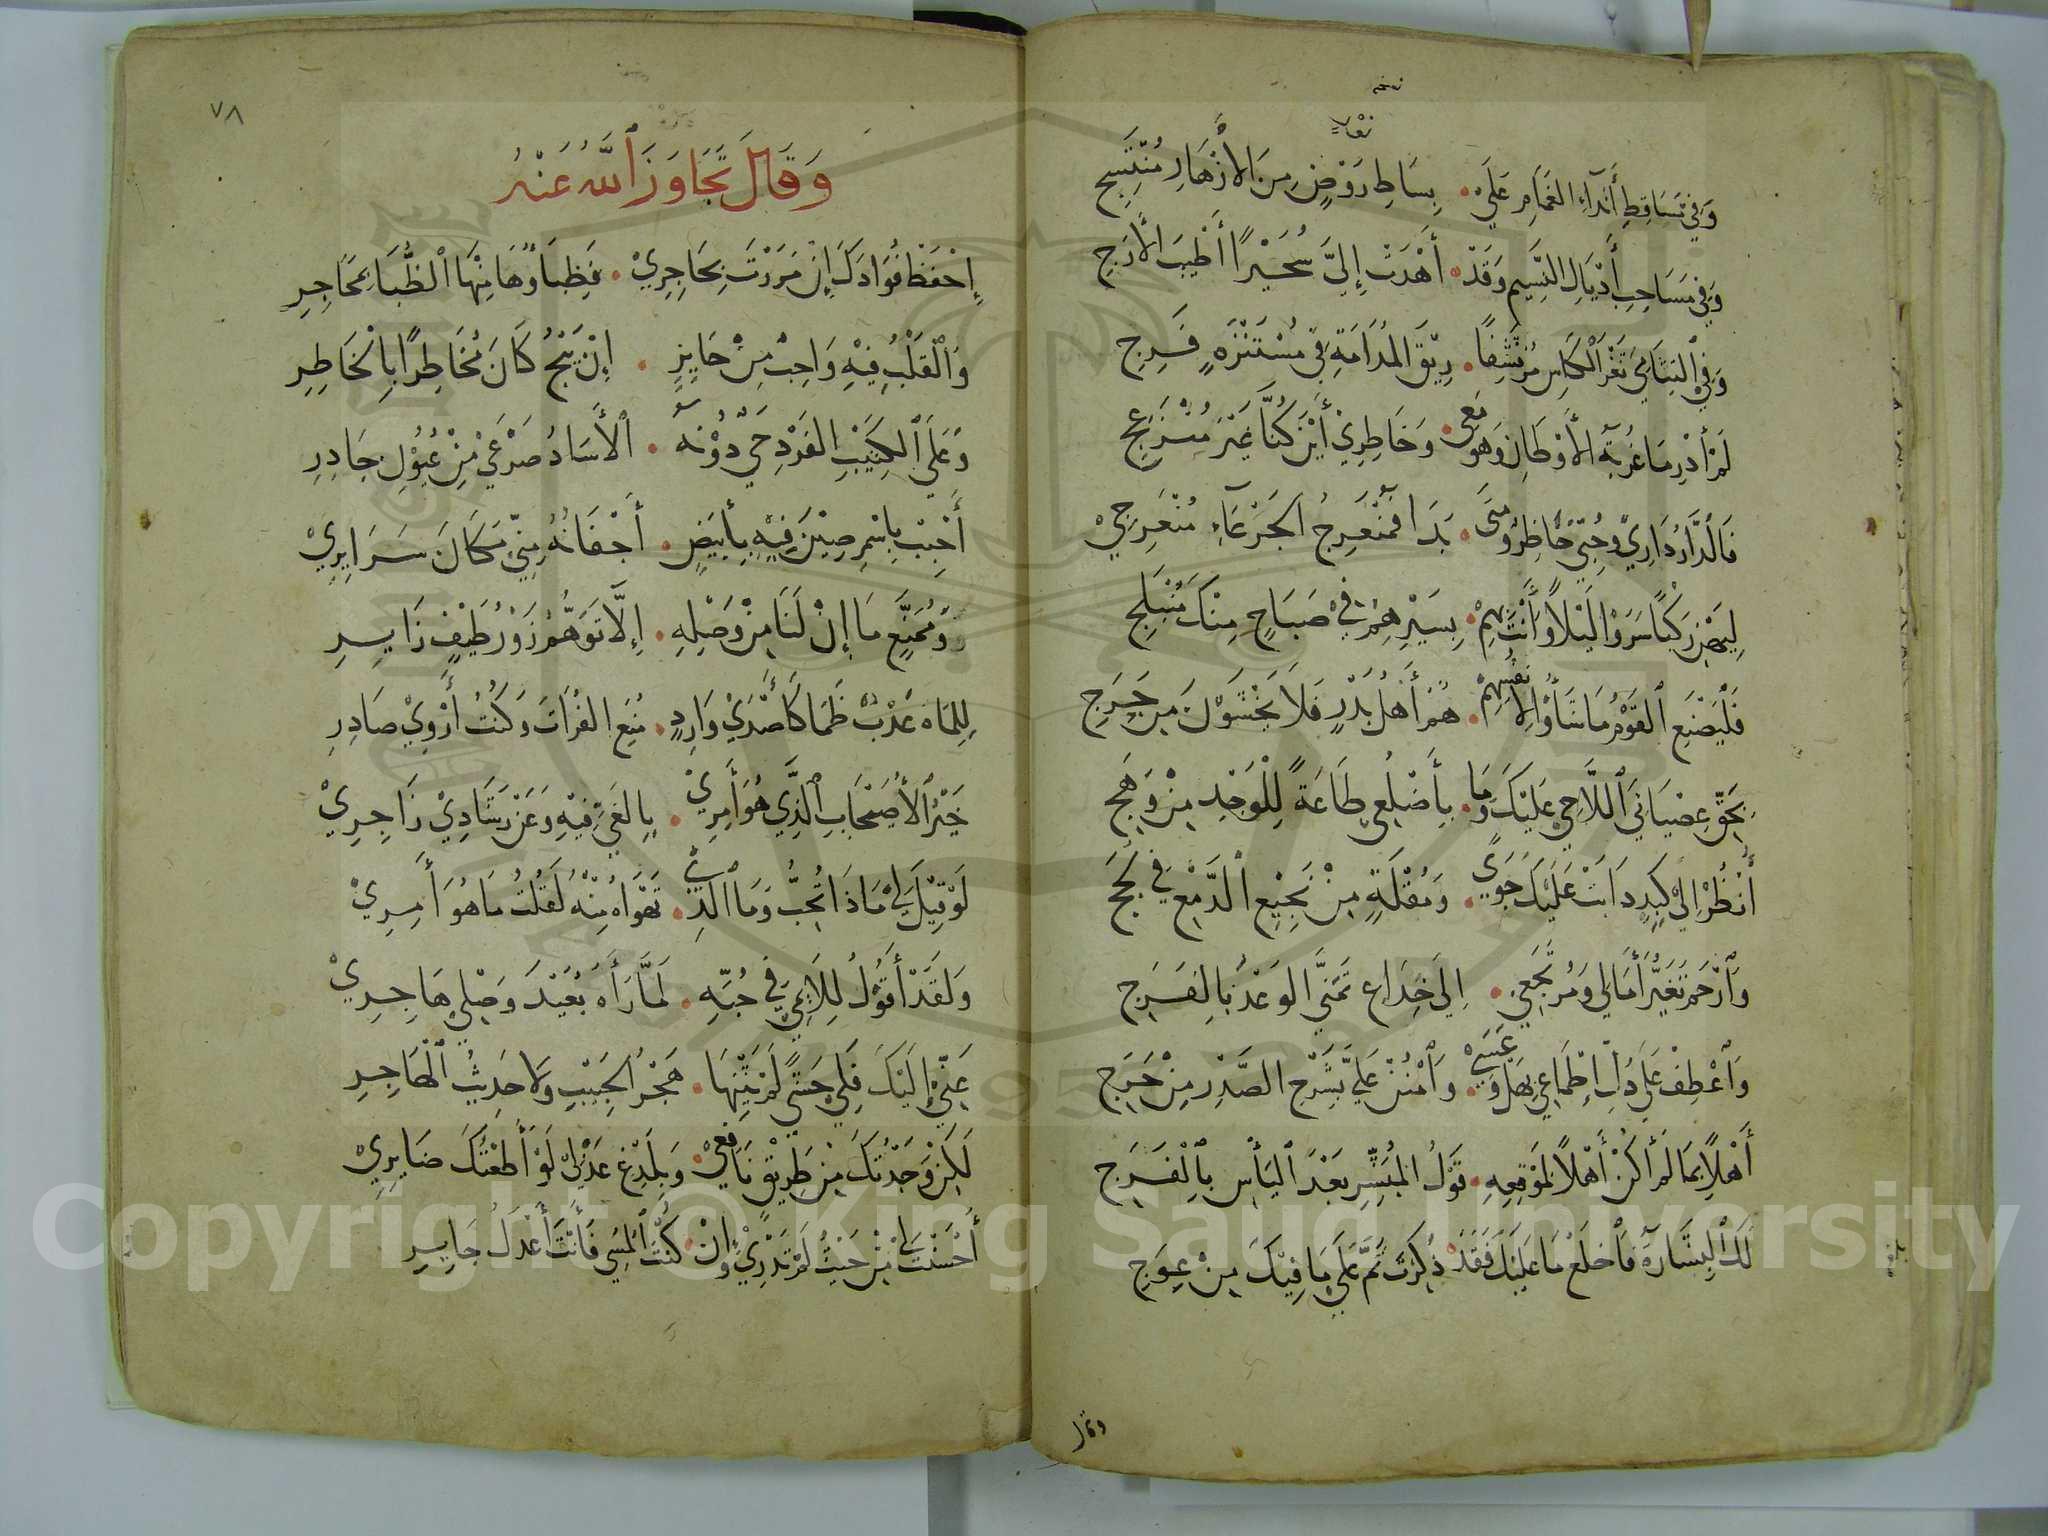 نسخة
نَوْرٍ
وَفِي تَسَاقُطِ أَنْدَاءِ الغَمَامِ عَلَى • بِسَاطِ رَوْضٍ مِنَ الأَزْهَارِ مُنْتَسِجِ
وَفِي مَسَاحِبِ أَذْيَالِ النَّسِيمِ وَقَدْ • أَهْدَتْ إِلَيَّ سُحَيْرًا أَطْيَبَ الأَرَجِ
وَفِي الْتِثَامِي ثَغْرَ الْكَاسِ مُرْتَشِفًا • رِيْقَ المُدَامَةِ فِي مُسْتَنْزَهٍ فَرِجِ
لَمْ أَدْرِ مَا غُرْبَةُ الأَوْطَانِ وَهُوَ مَعِي • وَخَاطِرِيْ أَيْنَ كُنَّا غَيْرَ مُنْزَعِجِ
فَالدَّارُ دَارِيْ وَحِبِّيْ حَاضِرٌ وَمَتَى • بَدَا فَمُنْعَرَجُ الجَرْعَاءِ مُنْعَرَجِيْ
لِيَهْنِ رَكْبًا سَرَوْا لَيْلًا وَأَنْتَ بِهِمْ • بِسَيْرِهِمْ فِيْ صَبَاحٍ مِنْكَ مُنْبَلِجِ
فَلْيَصْنَعِ القَوْمُ مَا شَاؤُا لِأَنْفُسِهِمْ • هُمْ أَهْلُ بَدْرٍ فَلَا يَخْشَوْنَ مِنْ حَرَجِ
بِحَقِّ عِصْيَانِيَ اللَّاحِيْ عَلَيْكَ وَمَا • بِأَضْلُعِيْ طَاعَةً لِلْوَجْدِ مِنْ وَهَجِ
أُنْظُرْ إِلَى كَبِدٍ ذَابَتْ عَلَيْكَ جَوًى • وَمُقْلَةٍ مِنْ نَجِيْعِ الدَّمْعِ فِي لُجَجِ
وَارْحَمْ تَعَثُّرَ أَمَالِي وَمُرْتَجَعِي • إِلَى خِدَاعِ تَمَنِّي الوَعْدِ بِالفَرَجِ
وَاعْطِفْ عَلَى ذُلِّ إِطْمَاعِي بِهَلْ وَعَسَى • وَامْنُنْ عَلَيَّ بِشَرْحِ الصَّدْرِ مِنْ حَرَجِ
أَهْلًا بِمَا لَمْ أَكُنْ أَهْلًا لِمَوْقِعِهِ • قَوْلُ المُبَشِّرِ بَعْدَ اليَأْسِ بِالْفَرَجِ
لَكَ الْبِشَارَةُ فَاخْلَعْ مَا عَلَيْكَ فَقَدْ • ذُكِرْتَ ثَمَّ عَلَى مَا فِيْكَ مِنْ عِوَجِ
وقال
٧٨
وَقَالَ تَجَاوَزَ اللَّهُ عَنْهُ
إِحْفَظْ فُوَادَكَ إِنْ مَرَرْتَ بِحَاجِرِيْ • فَظِبَاؤُهَا مِنْهَا الظُّبَا بِمَحَاجِرِ
وَالْقَلْبُ فِيْهِ وَاجِبٌ مِنْ جَايِزٍ • إِنْ يَنْجُ كَانَ مُخَاطِرًا بِالْخَاطِرِ
وَعَلَى الْكَثِيْبِ الفَرْدِ حَيٌّ دُوْنَهُ • الأَسَادُ صَرْعَى مِنْ عُيُوْنِ جَاذِرِ
أَحْبِبْ بِاسْمَرَ صِيْنَ فِيْهِ بِأَبْيَضٍ • أَجْفَانُهُ مِنِّي مَكَانَ سَرَايِرِيْ
وَمُمَنَّعٍ مَا إِنْ لَنَا مِنْ وَصْلِهِ • إِلَّا تَوَهُّمُ زَوْرِ طَيْفٍ زَايِرِ
لِلِمَاهُ عُدْتُ ظَمًا كَأَصْدَى وَارِدٍ • مُنِعَ الفُرَاتَ وَكُنْتُ أَرْوَى صَادِرِ
خَيْرُ الأُصَيْحَابِ الَّذِي هُوَ أَمِرِيْ • بِالغَيِّ فِيْهِ وَعَنْ رَشَادِيْ زَاجِرِيْ
لَوْ قِيْلَ لِيْ مَاذَا تُحِبُّ وَمَا الَّذِيْ • تَهْوَاهُ مِنْهُ لَقُلْتُ مَا هُوَ أَمِرِيْ
وَلَقَدْ أَقُوْلُ لِلَايِمِي فِي حُبِّهِ • لَمَّا رَأَهُ بُعَيْدَ وَصْلِي هَاجِرِيْ
عَنِّيْ إِلَيْكَ فَلِي حَشًى لَمْ يَثْنِهَا • هُجْرُ الحَبِيْبِ وَلَا حَدِيْثُ الهَاجِرِ
لَكِنْ وَجَدْتُكَ مِنْ طَرِيْقٍ نَافِعِيْ • وَبِلَدْغِ عَذْلِيْ لَوْ أَطَعْتُكَ ضَايِرِيْ
أَحْسَنْتَ لِيْ مِنْ حَيْثُ لَمْ تَدْرِيْ وَإِنْ • كُنْتَ المُسِي فَأَنْتَ أَعْدَلُ جَايِرِ
Copyright © King Saud University